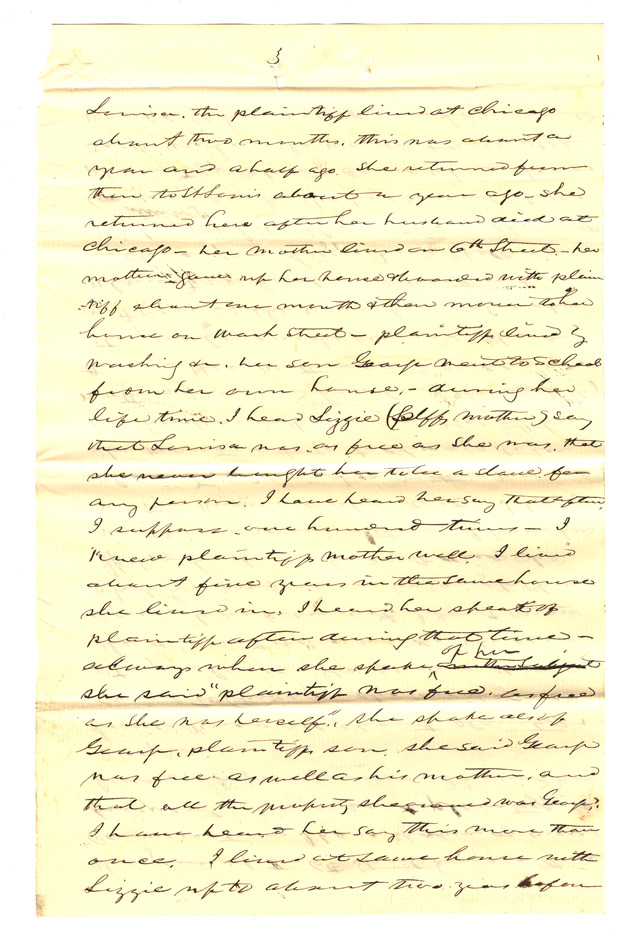 3
Louisa. the plaintiff lived at Chicago
about two months. this was about a
year and a half ago. She returned from
then to St Louis about a year ago - she
returned here after her husband died at
Chicago - her mother lived on 6th Street - her
mother gave up her house & boarded with plain
tiff about one month & then moved to a
house on Wash Street - plaintiff lived by
washing &c. her son George went to School
from her own house. - during her
life time. I heard Lizzie (pltffs mother) say
that Louisa was as free as she was, that
she never bought her to be a slave for
any person. I have heard her say that often
I suppose one hundred times - I
Knew plaintiffs mother well. I lived
about five years in the same house
she lived in. I heard her speak of
plaintiff often during that time -
always when she spoke of her
she said "plaintiff was free. as free
as she was herself", she spoke also of
George, plaintiffs son. she said George
was free as well as his mother, and
that all the property she owned was George's.
I have heard her say this more than
once. I lived at same house with
Lizzie up to about two years before